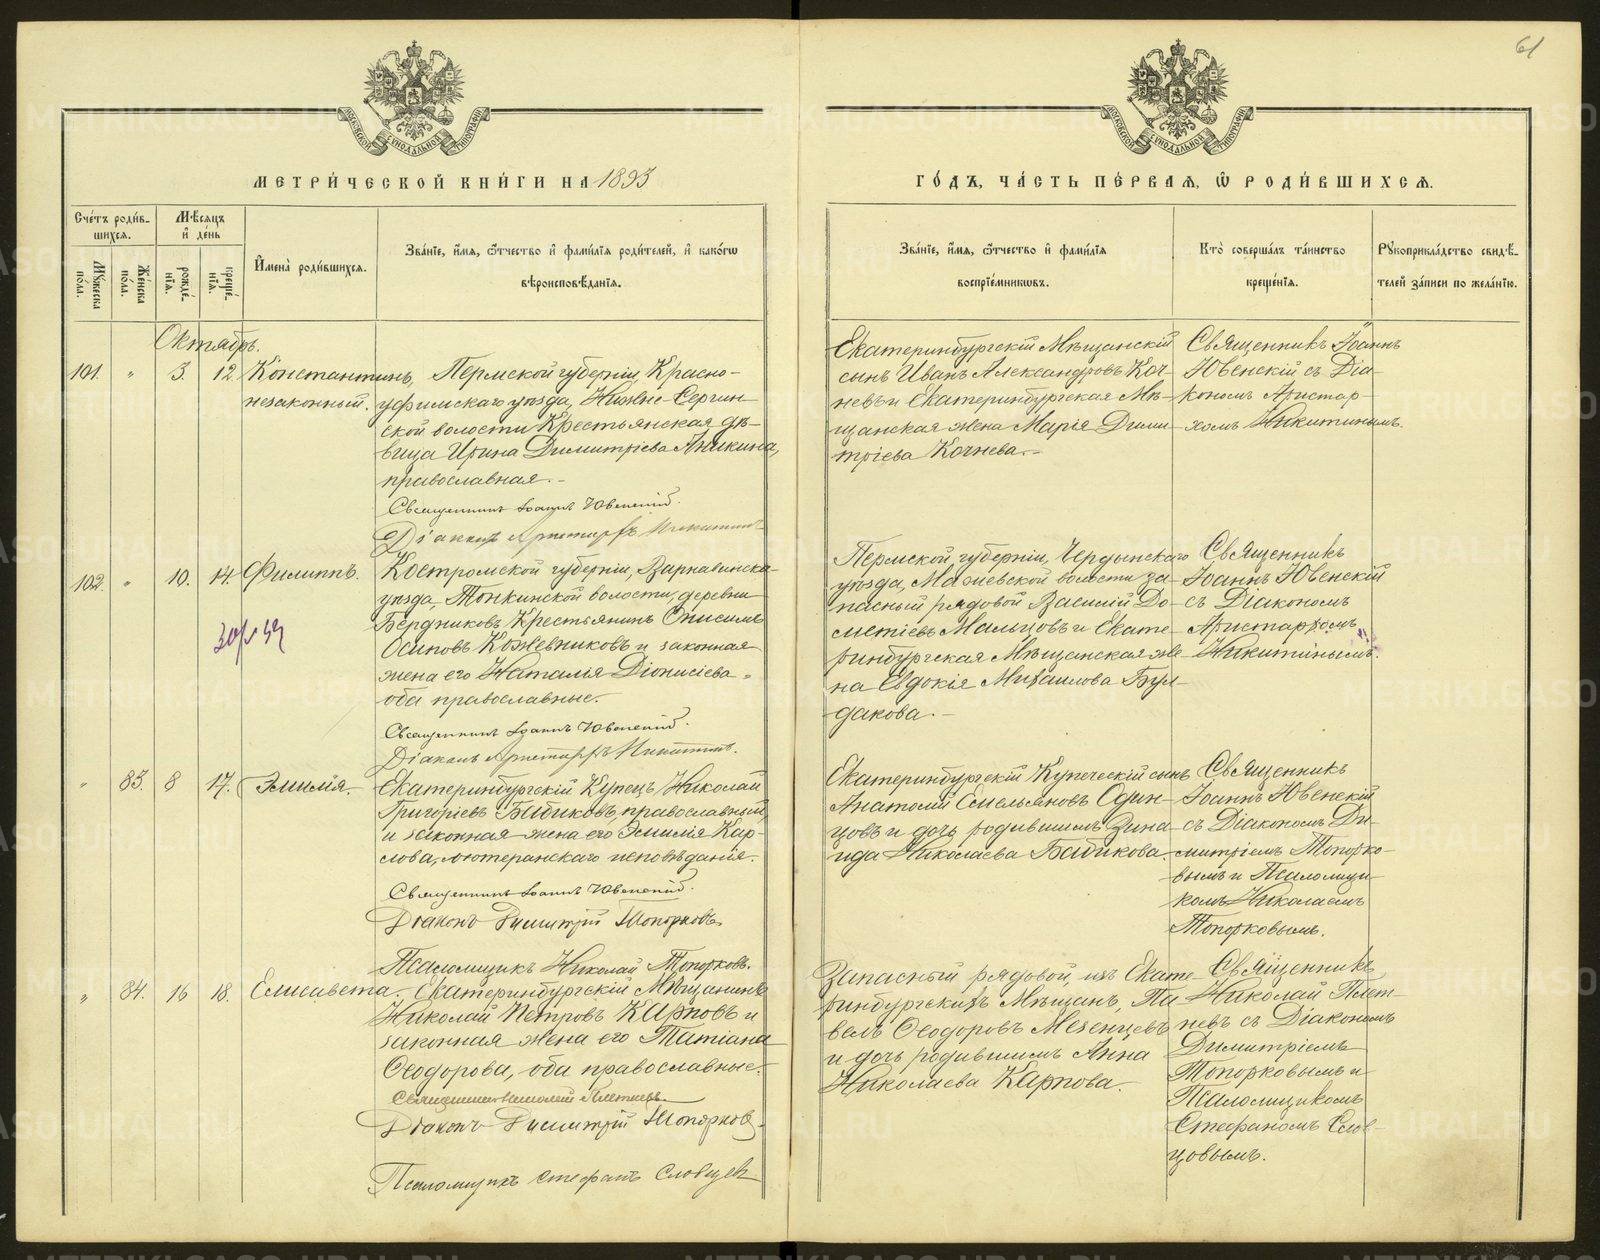 61
МОСКОВСКОЙ СѴНОДАЛЬНОЙ ТИПОГРАФІИ
МОСКОВСКОЙ СѴНОДАЛЬНОЙ ТИПОГРАФІИ
МЕТРИ́ЧЕСКОЙ КНИ́ГИ НА 1893
ГО́ДЪ, ЧА́СТЬ ПЕ́РВАѦ, Ѡ҆ РОДИ́ВШИХСѦ.
Сче́тъ роди́в-
шихсѧ.
Мꙋ́жеска по́ла.
Же́нска по́ла.
Мѣ́сѧцъ и҆ де́нь
рожде́нїѧ.
креще́нїѧ.
И҆мена̀ роди́вшихсѧ.
Зва́нїе, и҆́мѧ, ѻ҆́тчество и҆ фами́лїѧ роди́телей, и҆ како́гѡ
вѣроисповѣ́данїѧ.
Зва́нїе, и҆́мѧ, ѻ҆́тчество и҆ фами́лїѧ
воспрїе́мникѡвъ.
Кто̀ соверша́лъ та́инство
креще́нїѧ.
Рꙋкоприкла́дство свидѣ́-
телей за́писи по жела́нїю.
Октябрь.
101. " 3. 12. Константинъ,
незаконный.
Пермской губерніи, Красно-
уфимскаго уѣзда, Нижне-Сергин-
ской волости Крестьянская дѣ-
вица Ирина Димитріева Аникина,
православная.-
Священникъ Іоаннъ Ювенскій.
Діаконъ Аристархъ Никитинъ
Екатеринбургскій Мѣщанскій
сынъ Иванъ Александровъ Коч-
невъ и Екатеринбургская Мѣ-
щанская жена Марія Дими-
тріева Кочнева.-
Священникъ Іоаннъ
Ювенскій съ Діа-
кономъ Аристар-
хомъ Никитинымъ.
102. " 10. 14. Филиппъ.
Костромской губерніи, Варнавинска-
уѣзда, Тонкинской волости, деревни
Бердниковъ Крестьянинъ Онисимъ
Осиповъ Кожевниковъ и законная
жена его Наталія Діонисіева
оба православные.
Священникъ Іоаннъ Ювенскій.
Діаконъ Аристархъ Никитинъ.
Пермской губерніи, Чердынскаго
уѣзда, волости за-
пасный рядовой Василій До-
метіевъ Мальцовъ и Екате-
ринбургская Мѣщанская же-
на Евдокія Михаилова Бул-
дакова.-
Священникъ
Іоаннъ Ювенскій
съ Діакономъ
Аристархомъ
Никитинымъ.
" 83. 8 17. Эмилія.
Екатеринбургскій Купецъ Николай
Григоріевъ Бабиковъ, православный,
и законная жена его Эмилія Кар-
лова, лютеранскаго исповѣданія.
Священникъ Іоаннъ Ювенскій.
Діаконъ Димитрій Топорковъ.
Псаломщикъ Николай Топорковъ.
Екатеринбургскій Купеческій сынъ
Анатолій Емельяновъ Один-
цовъ и дочь родившимъ Зина-
ида Николаева Бабикова.
Священникъ
Іоаннъ Ювенскій
съ Діакономъ Ди-
митріемъ Топорко-
вымъ и Псаломщи-
комъ Николаемъ
Топорковымъ.
" 84. 16 18. Елисавета.
Екатеринбургскій Мѣщанинъ
Николай Петровъ Карповъ и
законная жена его Татіана
Ѳеодорова, оба православные.
Священникъ Николай Плетневъ.
Діаконъ Димитрій Топорковъ.
Псаломщикъ Стефанъ Словцевъ
Запасный рядовой, изъ Екате-
ринбургскихъ Мѣщанъ, Па-
велъ Ѳеодоровъ Мезенцевъ
и дочь родившимъ Анна
Николаева Карпова.
Священникъ
Николай Плет-
невъ съ Діакономъ
Димитріемъ
Топорковымъ и
Псаломщикомъ
Стефаномъ Слов-
цовымъ.